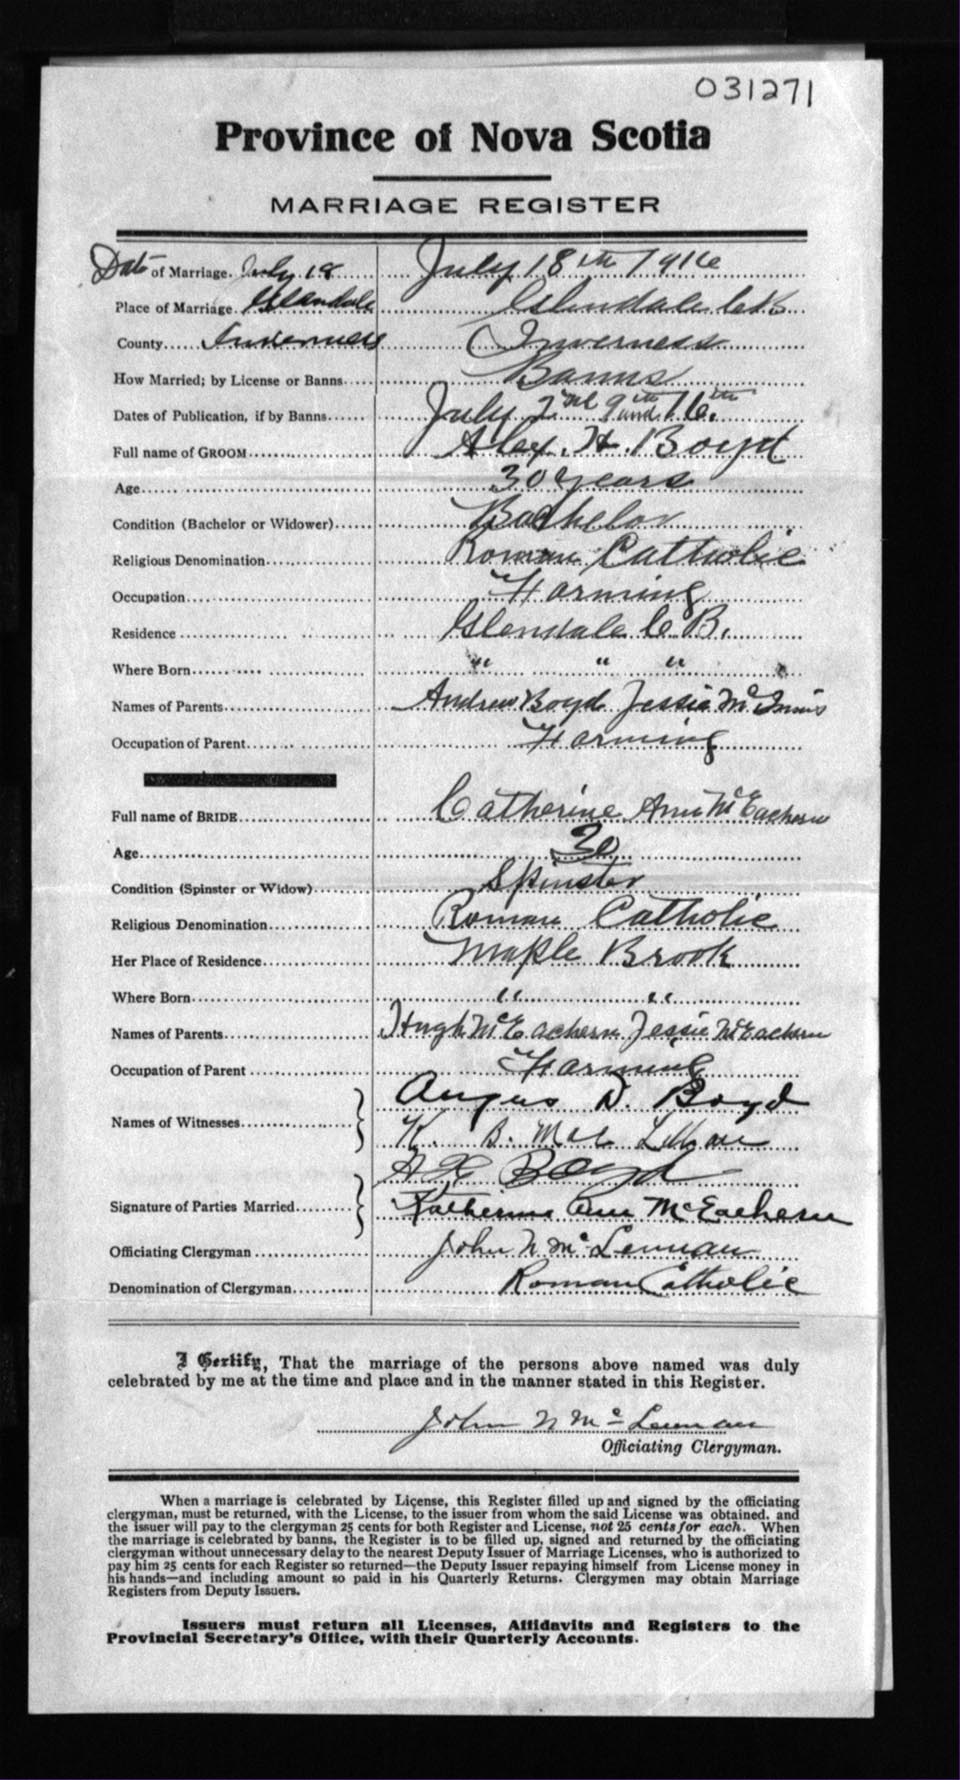 031271
Province of Nova Scotia
MARRIAGE REGISTER
Date of Marriage. July 18 July 18th 1916
Place of Marriage. Glendale Glendale C.B.
County Inverness Inverness
How Married; by License or Banns Banns
Dates of Publication, if by Banns July 2nd 9th and 16th
Full name of GROOM Alex. H. Boyd
Age 30 years
Condition (Bachelor or Widower) Bachelor
Religious Denomination Roman Catholic
Occupation Farming
Residence Glendale C.B.
Where Born " " "
Names of Parents Andrew Boyd Jessie McInnis
Occupation of Parent Farming
Full name of BRIDE Catherine Ann McEachern
Age 30
Condition (Spinster or Widow) Spinster
Religious Denomination Roman Catholic
Her Place of Residence Maple Brook
Where Born " "
Names of Parents Hugh McEachern Jessie McEachern
Occupation of Parent Farming
Names of Witnesses Angus D. Boyd
K. B. Mac
Signature of Parties Married Boyd
Katherine Ann McEachern
Officiating Clergyman John N McLennan
Denomination of Clergyman Roman Catholic
I Certify, That the marriage of the persons above named was duly
celebrated by me at the time and place and in the manner stated in this Register.
John N McLennan
Officiating Clergyman.
When a marriage is celebrated by License, this Register filled up and signed by the officiating
clergyman, must be returned, with the License, to the issuer from whom the said License was obtained, and
the issuer will pay to the clergyman 25 cents for both Register and License, not 25 cents for each. When
the marriage is celebrated by banns, the Register is to be filled up, signed and returned by the officiating
clergyman without unnecessary delay to the nearest Deputy Issuer of Marriage Licenses, who is authorized to
pay him 25 cents for each Register so returned—the Deputy Issuer repaying himself from License money in
his hands—and including amount so paid in his Quarterly Returns. Clergymen may obtain Marriage
Registers from Deputy Issuers.
Issuers must return all Licenses, Affidavits and Registers to the
Provincial Secretary's Office, with their Quarterly Accounts.